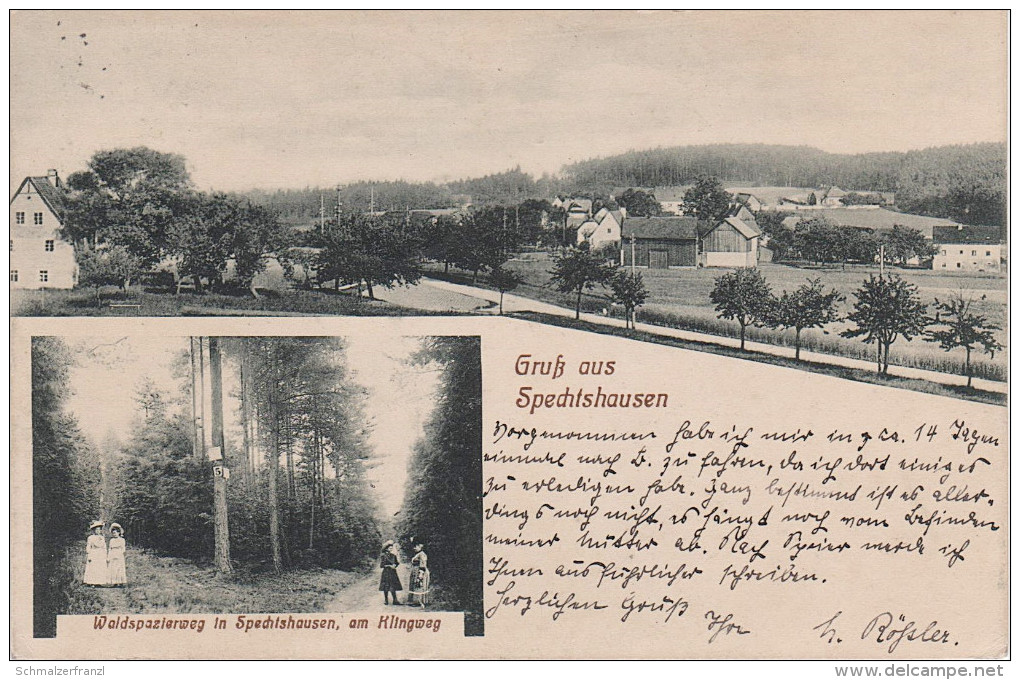 Gruß aus
Spechtshausen
Vorgenommen habe ich mir in ca. 14 Tagen
einmal nach B. zu fahren, da ich dort einiges
zu erledigen habe. Ganz bestimmt ist es aller-
dings noch nicht, es hängt noch vom Befinden
meiner Mutter ab. Nach Speier werde ich
Ihnen ausführlicher schreiben.
Herzlichen Gruß Ihr H. Rößler.
5
Waldspazierweg in Spechtshausen, am Klingweg
Schmalzerfranzl
www.delcampe.net